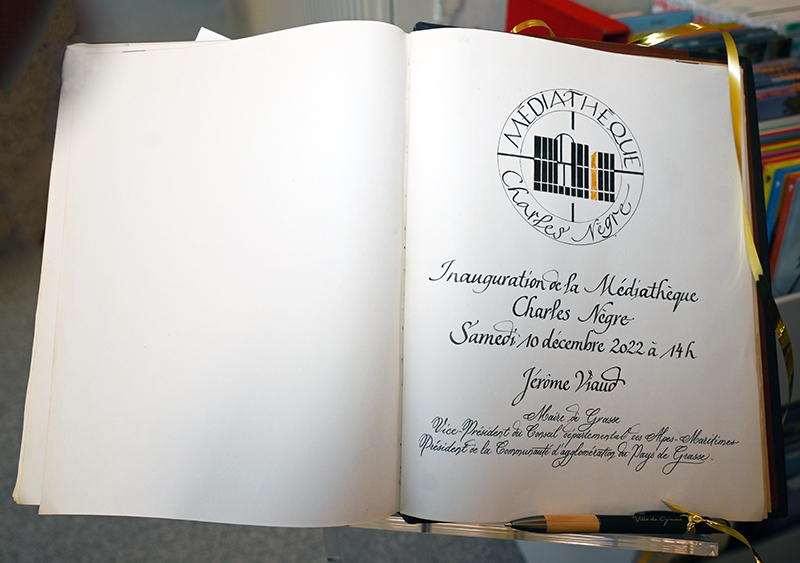 MÉDIATHÈQUE
Charles Nègre
Inauguration de la Médiathèque
Charles Nègre
Samedi 10 décembre 2022 à 14h
Jérôme Viaud
Maire de Grasse
Vice-Président du Conseil départemental des Alpes-Maritimes
Président de la Communauté d'agglomération du Pays de Grasse.
Ville de Grasse